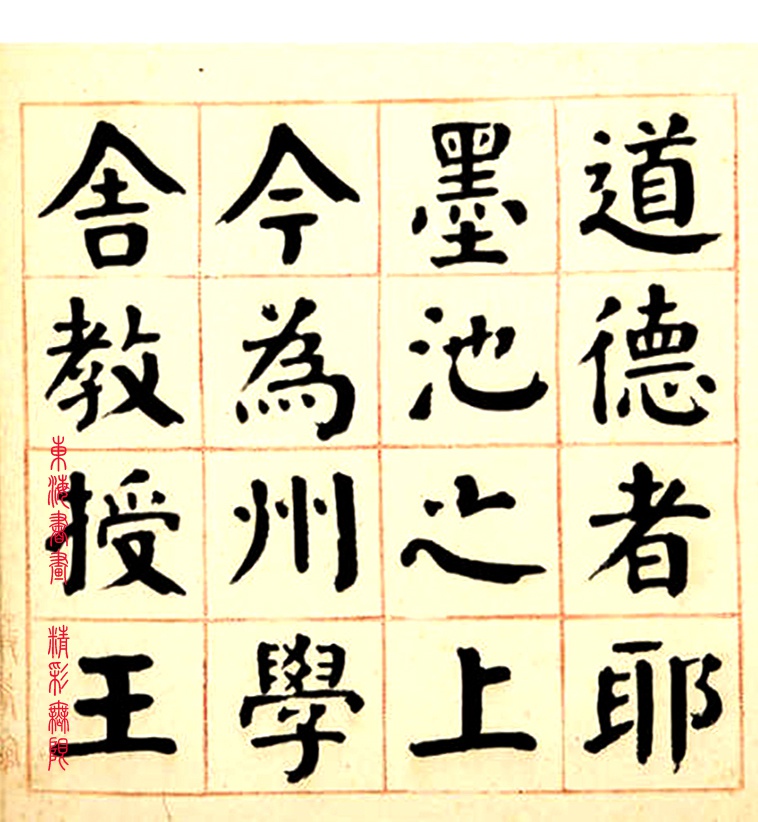 道德者耶
墨池之上
今為州學
舍教授王
東海書畫 精彩無限